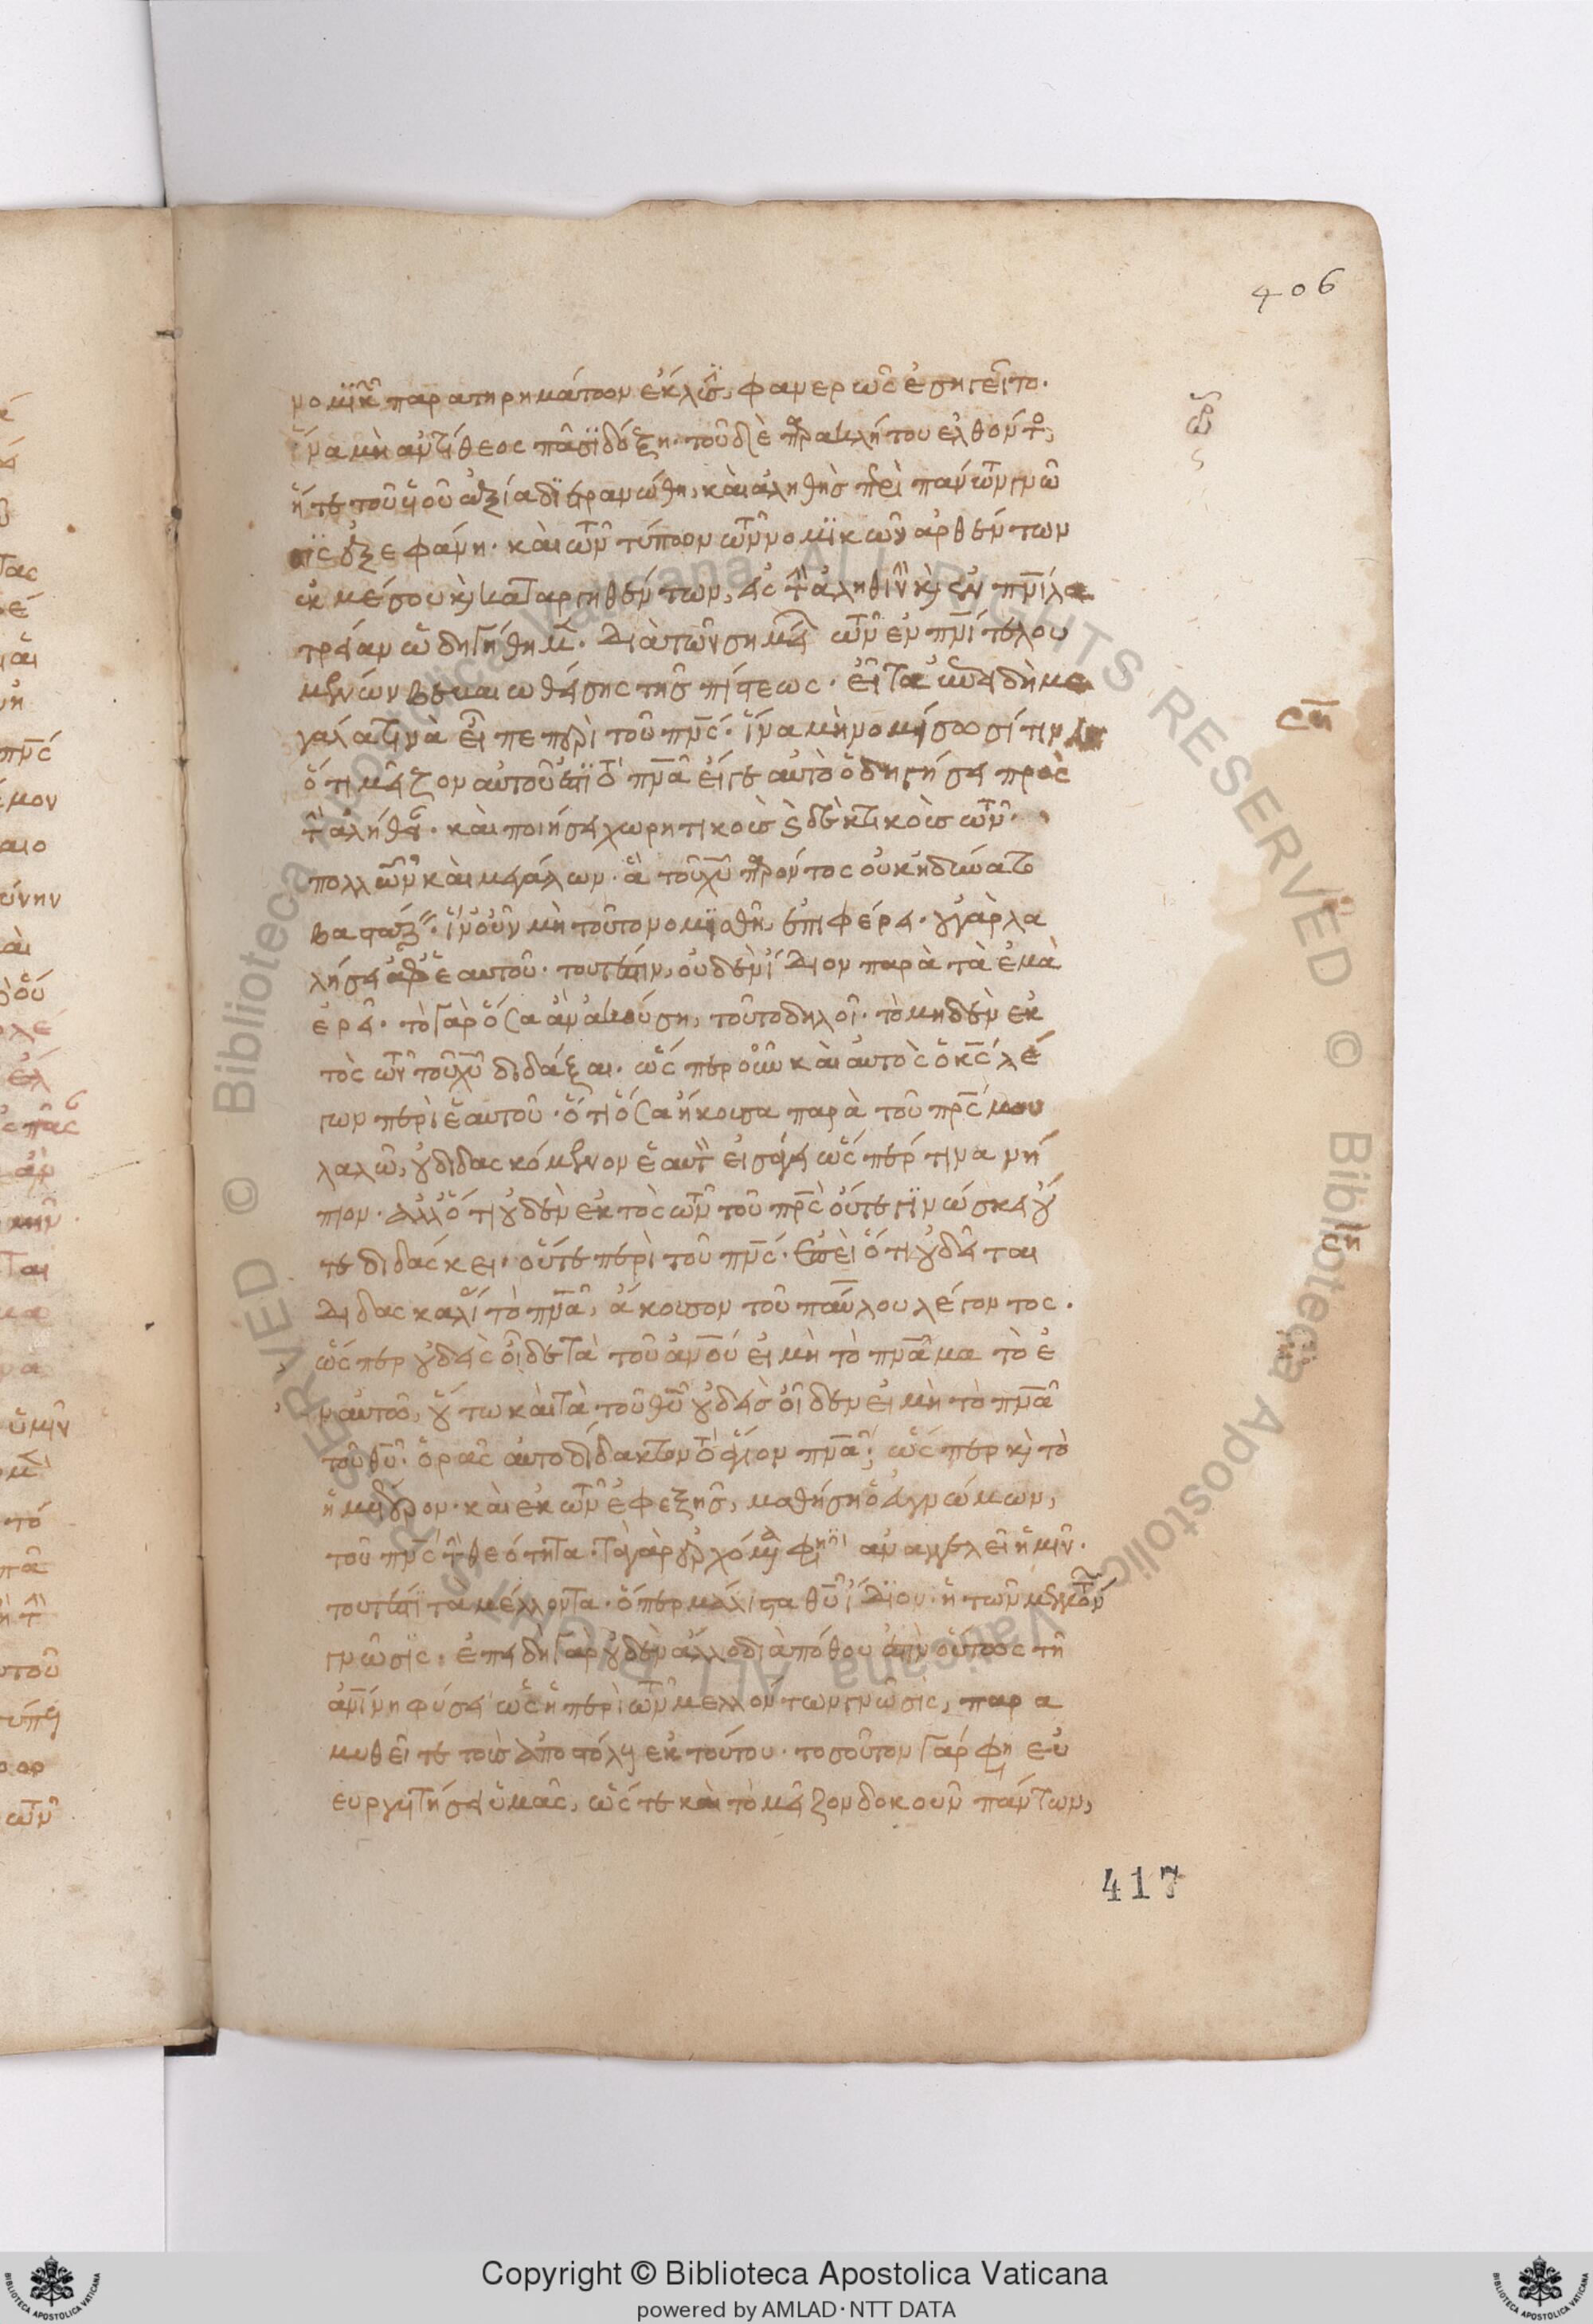 406
νομικῶν παρατηρημάτων ἔκλυσιν, φανερῶς ἐσιγεῖτο.
ἵνα μὴ ἀντίθεος πᾶσι δόξῃ. τοῦ δὲ παρακλήτου ελθόντος,
ἥ τε τοῦ υἱοῦ ἀξία διετρανώθη, καὶ ἀληθὴς περὶ πάντων γνῶ
σις ἐξεφάνη. καὶ τῶν τύπων τῶν νομικῶν ἀρθέντων
ἐκ μέσου καὶ καταργηθέντων, εἰς τὴν ἀληθινὴν καὶ ἐν πνι λα
τρείαν ὡδηγήθημεν. διὰ τῶν σημείων τῶν ἐν πνι τελου
μένων βεβαιωθείσης τῆς πίστεως. εἶτα ἐπειδὴ με
γάλα τινὰ εἶπε περὶ τοῦ πνς. ἵνα μὴ νομίσωσί τινες
ὅτι μεῖζον αὐτοῦ ἐστὶ τὸ πνα εἴγε αὐτὸ ὁδηγήσει πρὸς
τὴν ἀλήθειαν. καὶ ποιήσει χωρητικοὺς καὶ δεκτικοὺς τῶν
πολλῶν καὶ μεγάλων. ἃ τοῦ χυ παρόντος οὐκ ἠδύναντο
βαστάζειν. ἵν' οὖν μὴ τοῦτο νομισθῇ, ἐπιφέρει. οὐ γὰρ λα
λήσει ἀφ' ἑαυτοῦ. τουτέστιν, οὐδὲν ἴδιον παρὰ τὰ ἐμὰ
ἐρεῖ. τὸ γὰρ ὅσα ἂν ἀκούσῃ, τοῦτο δηλοῖ. τὸ μηδὲν ἐκ
τὸς τῶν τοῦ χυ διδάξαι. ὥσπερ οὖν καὶ αὐτὸς ὁ κς λέ
γων περὶ ἑαυτοῦ. ὅτι ὅσα ἤκουσα παρὰ τοῦ πρς μου
λαλῶ, οὐ διδασκόμενον ἑαυτὸν εἰσάγει ὥσπέρ τινα νή
πιον. ἀλλ' ὅτι οὐδὲν ἐκτὸς τῶν τοῦ πρς οὔτε γινώσκει οὔ
τε διδάσκει. οὕτω περὶ τοῦ πνς. ἐπεὶ ὅτι οὐ δεῖται
διδασκαλίας τὸ πνα, ἄκουσον τοῦ παύλου λέγοντος.
ὥσπερ οὐδεὶς οἶδε τὰ τοῦ ἀνου εἰ μὴ τὸ πνα μα τὸ ἐ
ν αὐτῶ, οὕτω καὶ τὰ τοῦ θυ οὐδεὶς οἶδεν εἰ μὴ τὸ πνα
τοῦ θυ. ὁρᾶς αὐτοδίδακτον τὸ ἅγιον πνα; ὥσπερ καὶ τὸ
ἡμέτερον. καὶ ἐκ τῶν ἐφεξῆς, μαθήσῃ ὁ ἀγνώμων,
τοῦ πνς τὴν θεότητα. τὰ γὰρ ἐρχόμενα φησὶν ἀναγγελεῖ ἡμῖν.
τουτέστι τὰ μέλλοντα. ὅπερ μάλιστα θυ ἴδιον. ἡ τῶν μελλόντων
γνῶσις. ἐπειδὴ γὰρ οὐδὲν ἄλλο διὰ πόθου ἐστὶν οὕτως τῇ
ἀνίνη φύσει ὡς ἡ περὶ τῶν μελλόντων γνῶσις, παρα
μυθεῖται τοὺς ἀποστόλους ἐκ τούτου. τοσοῦτον γάρ φησιν εὐ
εργετήσει ὑμᾶς, ὥστε καὶ τὸ μεῖζον δοκοῦν πάντων,
417
Copyright © Biblioteca Apostolica Vaticana
powered by AMLAD·NTT DATA